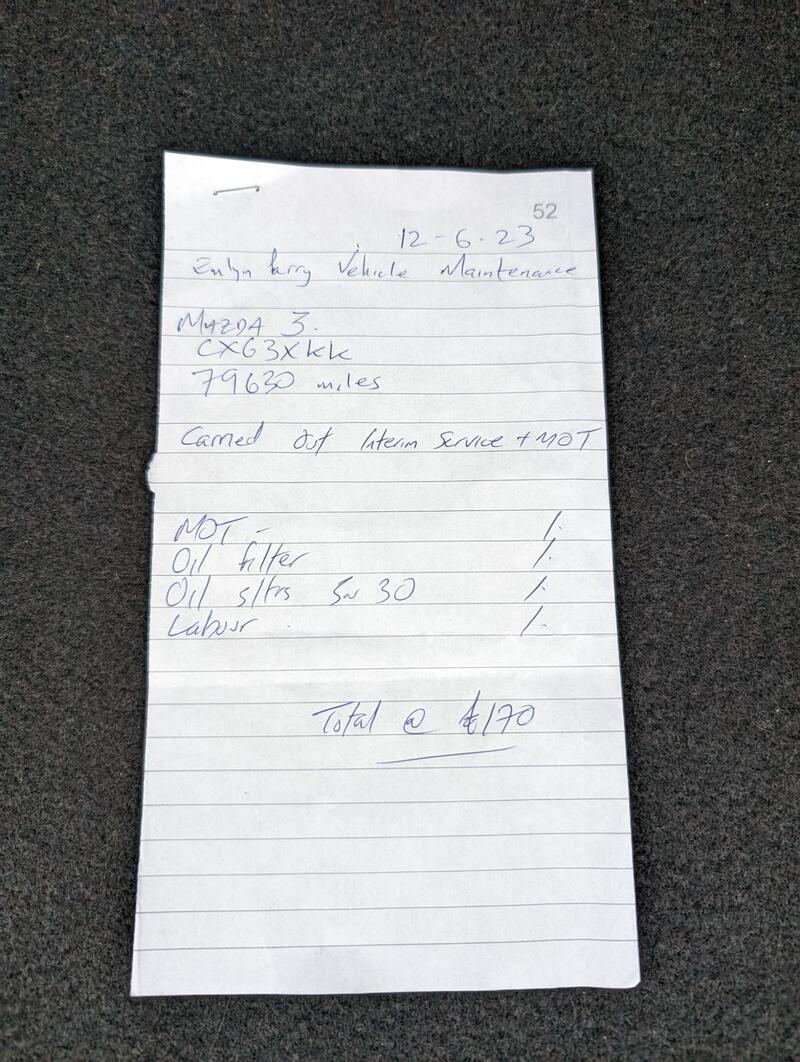 52
12-6.23
Emlyn Parry Vehicle Maintenance
MAZDA 3.
CX63XKK
79630 miles
Carried out Interim Service + MOT
MOT - 1.
Oil filter 1.
Oil 5ltrs 5w 30 1.
Labour. 1.
Total @ £170